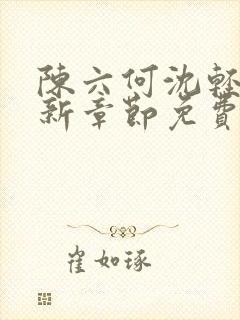 陳六何沈輕
新章節免費
崔如琢